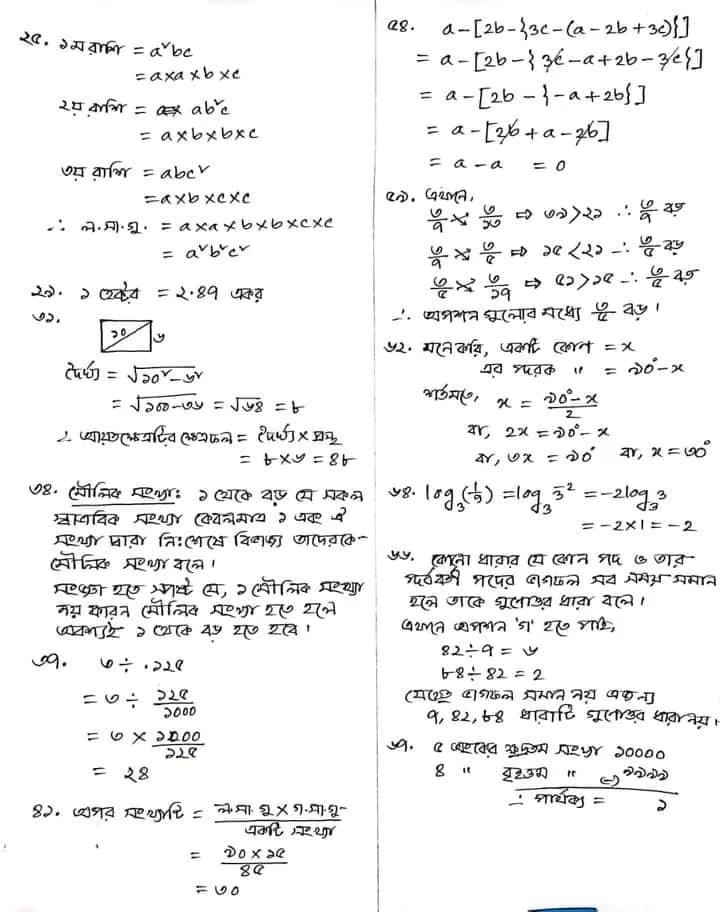 ২৫. ১ম রাশি = a²bc
= a×a×b×c
২য় রাশি = ab²c
= a×b×b×c
৩য় রাশি = abc²
= a×b×c×c
∴ ল.সা.গু. = a×a×b×b×c×c
= a²b²c²
২৯. ১ হেক্টর = ২.৪৭ একর
৩১.
১০ ৬
দৈর্ঘ্য = √১০²-৬²
= √১০০-৩৬ = √৬৪ = ৮
∴ আয়তক্ষেত্রটির ক্ষেত্রফল = দৈর্ঘ্য × প্রস্থ
= ৮×৬ = ৪৮
৩৪. মৌলিক সংখ্যা: ১ থেকে বড় যে সকল
স্বাভাবিক সংখ্যা কেবলমাত্র ১ এবং ঐ
সংখ্যা দ্বারা নিঃশেষে বিভাজ্য তাদেরকে
মৌলিক সংখ্যা বলে।
সংজ্ঞা হতে স্পষ্ট যে, ১ মৌলিক সংখ্যা
নয় কারন মৌলিক সংখ্যা হতে হলে
অবশ্যই ১ থেকে বড় হতে হবে।
৩৭. ৩ ÷ .১২৫
= ৩ ÷ ১২৫/১০০০
= ৩ × ১০০০/১২৫
= ২৪
৪২. অপর সংখ্যাটি = ল.সা.গু × গ.সা.গু / একটি সংখ্যা
= ৯০ × ১৫ / ৪৫
= ৩০
৫৪. a-[2b-{3c-(a-2b+3c)}]
= a-[2b-{3c-a+2b-3c}]
= a-[2b-{-a+2b}]
= a-[2b+a-2b]
= a-a = 0
৫৯. এখানে,
৩/৭ × ৩/১৩ ⇒ ৩৯>২১ ∴ ৩/৭ বড়
৩/৭ × ৩/৫ ⇒ ১৫<২১ ∴ ৩/৫ বড়
৩/৫ × ৩/১৭ ⇒ ৫১>১৫ ∴ ৩/৫ বড়
∴ অপশন গুলোর মধ্যে ৩/৫ বড়।
৬২. মনে করি, একটি কোণ = x
এর পূরক " = ৯০°-x
শর্তমতে, x = ৯০°-x / 2
বা, 2x = ৯০°-x
বা, ৩x = ৯০° বা, x = ৩০°
৬৪. log₃(1/9) = log₃ 3⁻² = -2log₃ 3
= -2×1 = -2
৬৬. কোনো ধারার যে কোন পদ ও তার
পূর্ববর্তী পদের ভাগফল সব সময় সমান
হলে তাকে গুণোত্তর ধারা বলে।
এখানে অপশন 'গ' হতে পাই,
৪২÷৭ = ৬
৮৪÷৪২ = 2
যেহেতু ভাগফল সমান নয় এজন্য
৭, ৪২, ৮৪ ধারাটি গুণোত্তর ধারা নয়।
৬৭. ৫ অংকের ক্ষুদ্রতম সংখ্যা ১০০০০
৪ " বৃহত্তম " (-) ৯৯৯৯
∴ পার্থক্য = ১